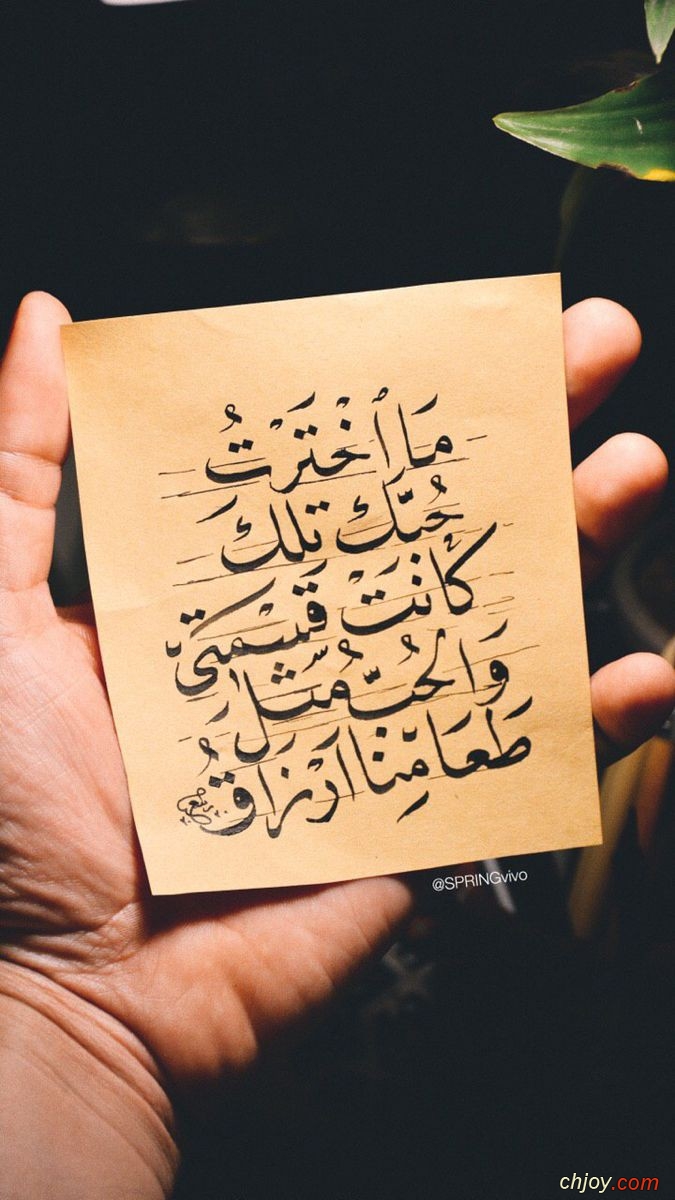 مَا أخْتَرْتُ
حُبَّك تِلكَ
كَانَتْ قِسْمَتي
وَالحُبُّ مُثلَ
طَعَامِنَا أرْزَاقُ
@SPRINGvivo
chjoy.com